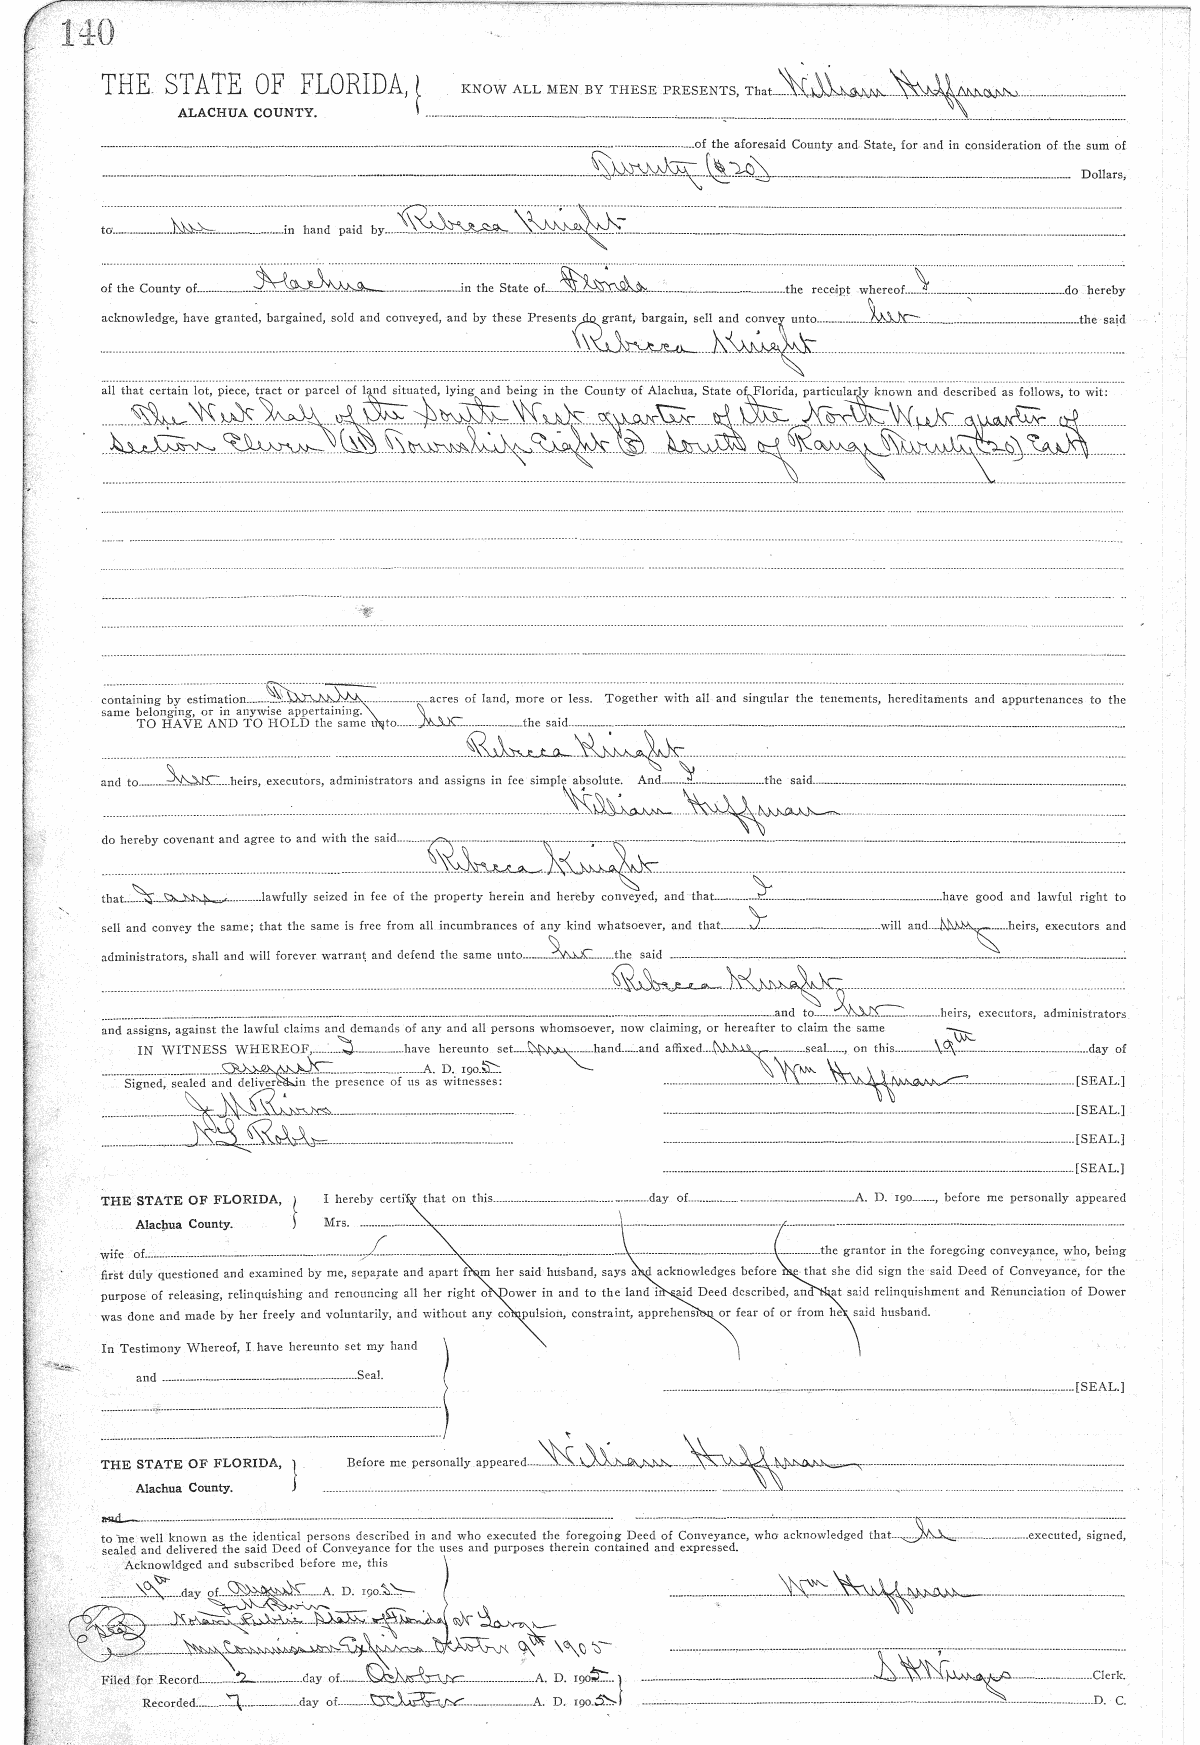 140
THE STATE OF FLORIDA, KNOW ALL MEN BY THESE PRESENTS, That William Huffman
ALACHUA COUNTY.
of the aforesaid County and State, for and in consideration of the sum of
Twenty ($20) Dollars,
to me in hand paid by Rebecca Knight
of the County of Alachua in the State of Florida the receipt whereof I do hereby
acknowledge, have granted, bargained, sold and conveyed, and by these Presents do grant, bargain, sell and convey unto her the said
Rebecca Knight
all that certain lot, piece, tract or parcel of land situated, lying and being in the County of Alachua, State of Florida, particularly known and described as follows, to wit:
The West half of the South West quarter of the North West quarter of
section Eleven (11) Township Eight (8) South of Range Twenty (20) East
containing by estimation Twenty acres of land, more or less. Together with all and singular the tenements, hereditaments and appurtenances to the
same belonging, or in anywise appertaining.
TO HAVE AND TO HOLD the same unto her the said
Rebecca Knight
and to her heirs, executors, administrators and assigns in fee simple absolute. And I the said
William Huffman
do hereby covenant and agree to and with the said
Rebecca Knight
that I am lawfully seized in fee of the property herein and hereby conveyed, and that I have good and lawful right to
sell and convey the same; that the same is free from all incumbrances of any kind whatsoever, and that I will and my heirs, executors and
administrators, shall and will forever warrant and defend the same unto her the said
Rebecca Knight
and to her heirs, executors, administrators
and assigns, against the lawful claims and demands of any and all persons whomsoever, now claiming, or hereafter to claim the same
IN WITNESS WHEREOF, I have hereunto set my hand and affixed my seal, on this 19th day of
August A. D. 1905
Wm Huffman [SEAL.]
Signed, sealed and delivered in the presence of us as witnesses:
J M Rivers [SEAL.]
N L Robb [SEAL.]
[SEAL.]
THE STATE OF FLORIDA, I hereby certify that on this day of A. D. 190 , before me personally appeared
Alachua County. Mrs.
wife of the grantor in the foregoing conveyance, who, being
first duly questioned and examined by me, separate and apart from her said husband, says and acknowledges before me that she did sign the said Deed of Conveyance, for the
purpose of releasing, relinquishing and renouncing all her right of Dower in and to the land in said Deed described, and that said relinquishment and Renunciation of Dower
was done and made by her freely and voluntarily, and without any compulsion, constraint, apprehension or fear of or from her said husband.
In Testimony Whereof, I have hereunto set my hand
and Seal.
[SEAL.]
THE STATE OF FLORIDA, Before me personally appeared William Huffman
Alachua County.
and
to me well known as the identical persons described in and who executed the foregoing Deed of Conveyance, who acknowledged that he executed, signed,
sealed and delivered the said Deed of Conveyance for the uses and purposes therein contained and expressed.
Acknowldged and subscribed before me, this
19th day of August A. D. 1905 Wm Huffman
J M Rivers
Seal Notary Public State of Florida at Large
My Commission Expires October 9th 1905
Filed for Record 2 day of October A. D. 1905 S H Wienges Clerk.
Recorded 7 day of October A. D. 1905 D. C.